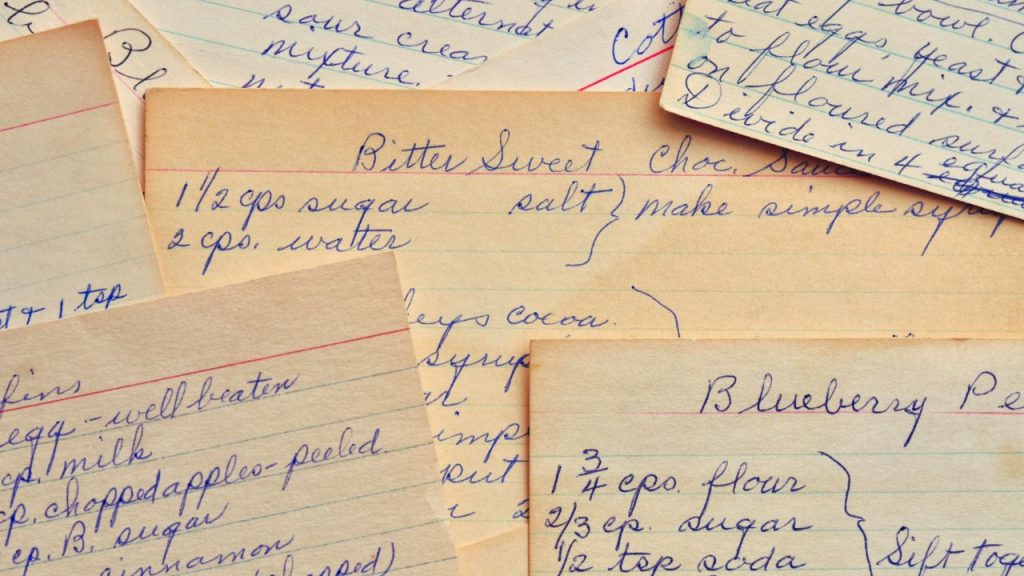 alternat
sour crea
mixture.
Bl
Cot
eat eggs, yeast &
to flour mix. &
on floured surf
Devide in 4 equa
Bitter Sweet Choc. Sauc
1 1/2 cps sugar salt } make simple syrup
2 cps. watter
leys cocoa.
syrup
imp
put
st & 1 tsp
fins
egg - well beaten
cp. milk
cp. chopped apples - peeled.
cp. B. sugar
cinnamon
Blueberry Pe
1 3/4 cps. flour
2/3 cp. sugar
1/2 tsp soda
Sift toge